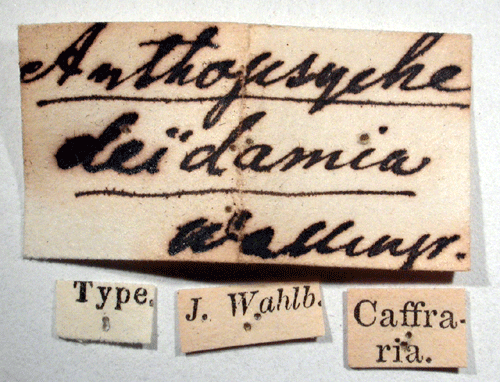 Anthopsyche
deïdamia
Wallengr.
Type.
J. Wahlb.
Caffra-
ria.